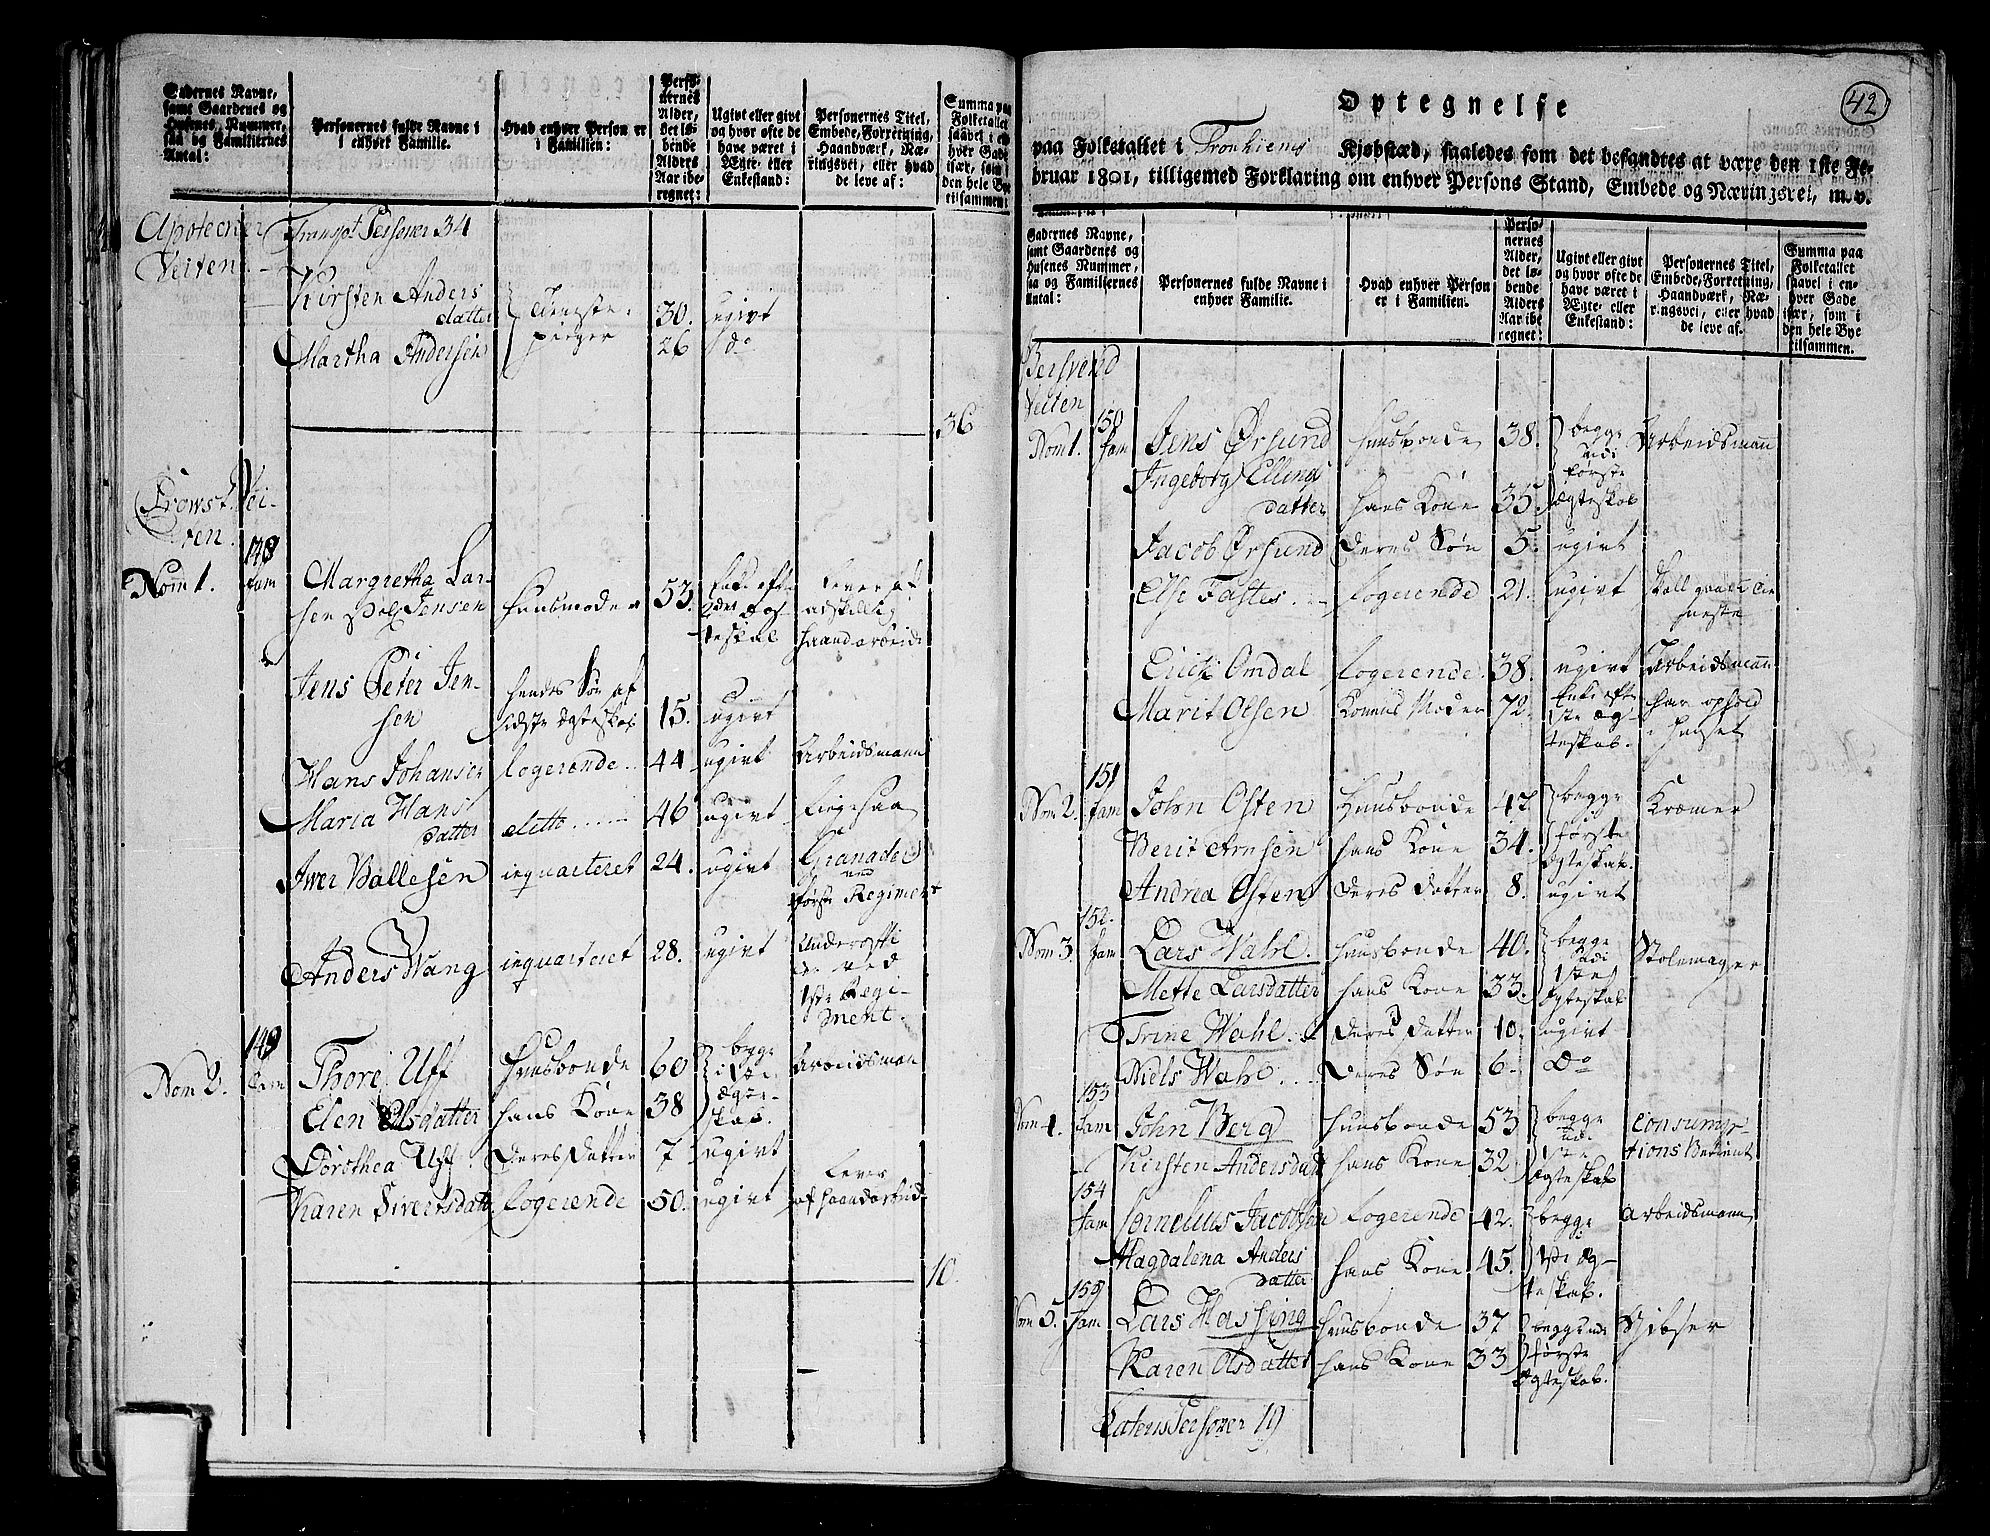 Gadernes Navne, samt Gaardenes og Husenes Nummer, saa og Familiernes Antal:
Personernes fulde Navne i enhver Familie.
Hvad enhver Person er i Familien:
Personernes Alder, det løbende Alders Aar iberegnet:
Ugivt eller givt og hvor ofte de have været i Ægte- eller Enkestand:
Personernes Titel, Embede, Forretning, Haandværk, Næringsvei, eller hvad de leve af:
Summa paa Folketallet saavel i enhver Gade især, som i den hele Bye tilsammen:
Apotecher Veiten
Transpt Personer 34
Kirsten Andersdatter Tieneste- 30. ugivt
Martha Andersen piger 26 do
36
Prowst Veiten.
148
Nom 1. fam Margretha Larsen sal Jensen huusmoder 53. Enke efter 2det Ægteskab Lever af adskillig haandarbeide
Jens Peter Jensen hendes Søn af sidste Ægteskab 15. ugivt
Hans Johansen logerende 44 ugivt Arbeidsmann
Maria Hansdatter ditto 46 ugivt
Iwer Ballesen inquarteret 24. ugivt Granadeer ved første Regiment
Anders Wang inquarteret 28. ugivt Underofficier ved 1ste Regiment.
149
Nom 2. fam Thore Uff Huusbonde 60 begge i 1ste Ægteskab. Arbeidsman
Elen Olsdatter hans Kone 38
Dorothea Uff deres Datter 7 ugivt
Karen Sivertsdatt logerende 50. ugivt Lever af haandarbeid
10.
42
Optegnelse
paa Folketallet i Tronhiems Kjøbstæd, saaledes som det befandtes at være den 1ste Fe-
bruar 1801, tilligemed Forklaring om enhver Persons Stand, Embede og Næringsvei, m.v.
Gadernes Navne, samt Gaardenes og Husenes Nummer, saa og Familiernes Antal:
Personernes fulde Navne i enhver Familie.
Hvad enhver Person er i Familien.
Personernes Alder, det løbende Alders Aar iberegnet:
Ugivt eller givt og hvor ofte de have været i Ægte- eller Enkestand:
Personernes Titel, Embede, Forretning, Haandværk, Næringsvei, eller hvad de leve af.
Summa paa Folketallet saavel i enhver Gade især, som i den hele Bye tilsammen.
Bersvend Veiten
150
Nom 1. fam Jens Ørsund huusbonde 38. begge udi første Ægteskab Arbeidsmann
Ingeborg Ellingsdatter hans Kone 35.
Jacob Ørsund deres Søn 5. ugivt
Else Fastes logerende 21. ugivt
Erich Omdal logerende 38. ugivt Arbeidsmann
Marit Olsen Konens Moder 72. Enke efter 1ste Ægteskab. har ophold i huuset
151
Nom 2. fam John Osten Huusbonde 47. begge første Ægteskab. Kræmer
Berit Arnsen hans Kone 34.
Andrea Osten deres Datter 8. ugivt
152.
Nom 3. fam Lars Wahl. huusbonde 40. begge udi 1ste Ægteskab Stolemager
Mette Larsdatter hans Kone 33.
Trine Wahl. deres Datter 10. ugivt
Niels Wahl deres Søn 6. Do
153
Nom 4. fam John Berg huusbonde 53 begge udi 1ste Ægteskab Consumptions Betient
Kirsten Andersdatt hans Kone 32
154
fam Cornelius Jacobsen logerende 42. begge 1ste Ægteskab. Arbeidsmann
Magdalena Andersdatter hans Kone 45.
155
Nom 5. fam Lars Hassing huusbonde 37 begge udi første Ægteskab.
Karen Olsdatter hans Kone 33
Lateris Personer 19